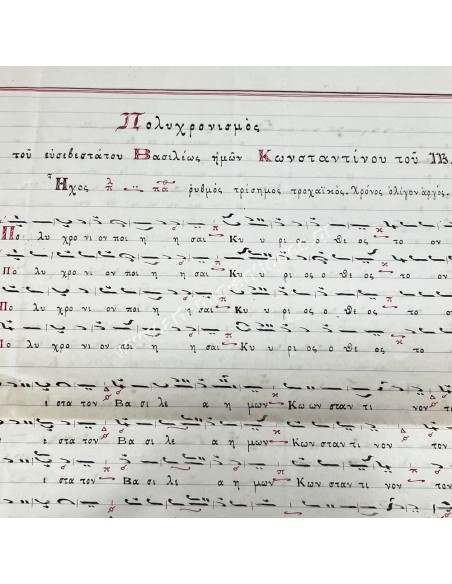 Πολυχρονισμὸς
τοῦ εὐσεβεστάτου Βασιλέως ἡμῶν Κωνσταντίνου τοῦ ΙΒ.
Ἦχος πα ῥυθμὸς τρίσημος τροχαϊκός. Χρόνος ὀλίγον ἀργός.
Πο λυ χρο νι ον ποι η η σαι Κυ υ ρι ος ο θε ος το ον
Πο λυ χρο νι ον ποι η η σαι Κυ υ ρι ος ο θε ος το ον
Πο λυ χρο νι ον ποι η η σαι Κυ υ ρι ος ο θε ος το ον
Πο λυ χρο νι ον ποι η η σαι Κυ υ ρι ος ο θε ος το
ε στα τον Βα σι λε α η μων Κω ων σταν τι νον το
ε στα τον Βα σι λε α η μων Κων σταν τι νον τον
ε στα τον Βα σι λε α η μων Κων σταν τι νον τον